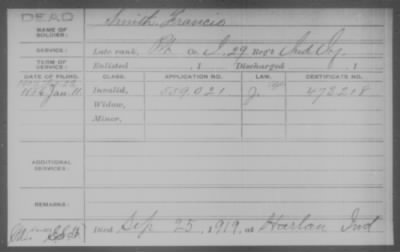 DEAD
NAME OF SOLDIER: Smith, Francis
SERVICE: Late rank, Pt Co. I, 29 Reg't Ind Inf.
TERM OF SERVICE: Enlisted , 1 Discharged , 1
DATE OF FILING. CLASS. APPLICATION NO. LAW. CERTIFICATE NO.
1886 Jan. 11 Invalid, 559.021 J. 473218
Widow,
Minor,
ADDITIONAL SERVICES:
REMARKS:
Died Sep 25, 1919, at Harlan Ind